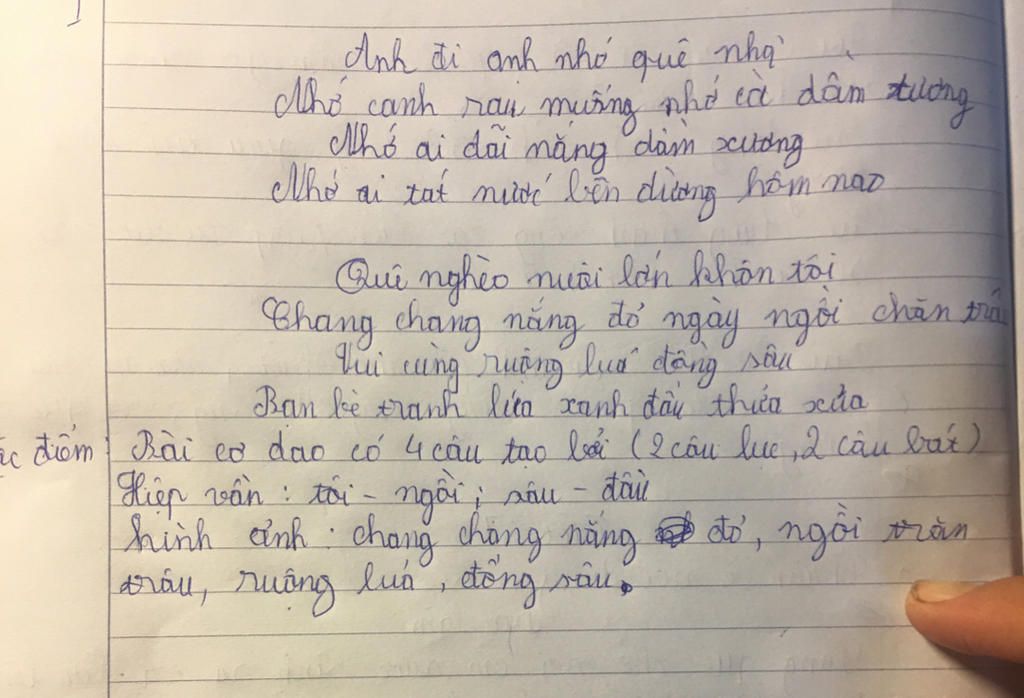 Anh đi anh nhớ quê nhà
Nhớ canh rau muống nhớ cà dầm tương
Nhớ ai dãi nắng dầm sương
Nhớ ai tát nước bên đường hôm nao
Quê nghèo nuôi lớn khôn tôi
Chang chang nắng đỏ ngày ngồi chăn trâu
Vui cùng ruộng lúa đồng sâu
Bạn bè tranh lúa xanh đầu thửa xưa
ặc điểm: Bài ca dao có 4 câu tạo bởi (2 câu lục, 2 câu bát)
Hiệp vần: tôi - ngồi; sâu - đầu
hình ảnh: chang chang nắng đỏ, ngồi trăn
trâu, ruộng lúa, đồng sâu.